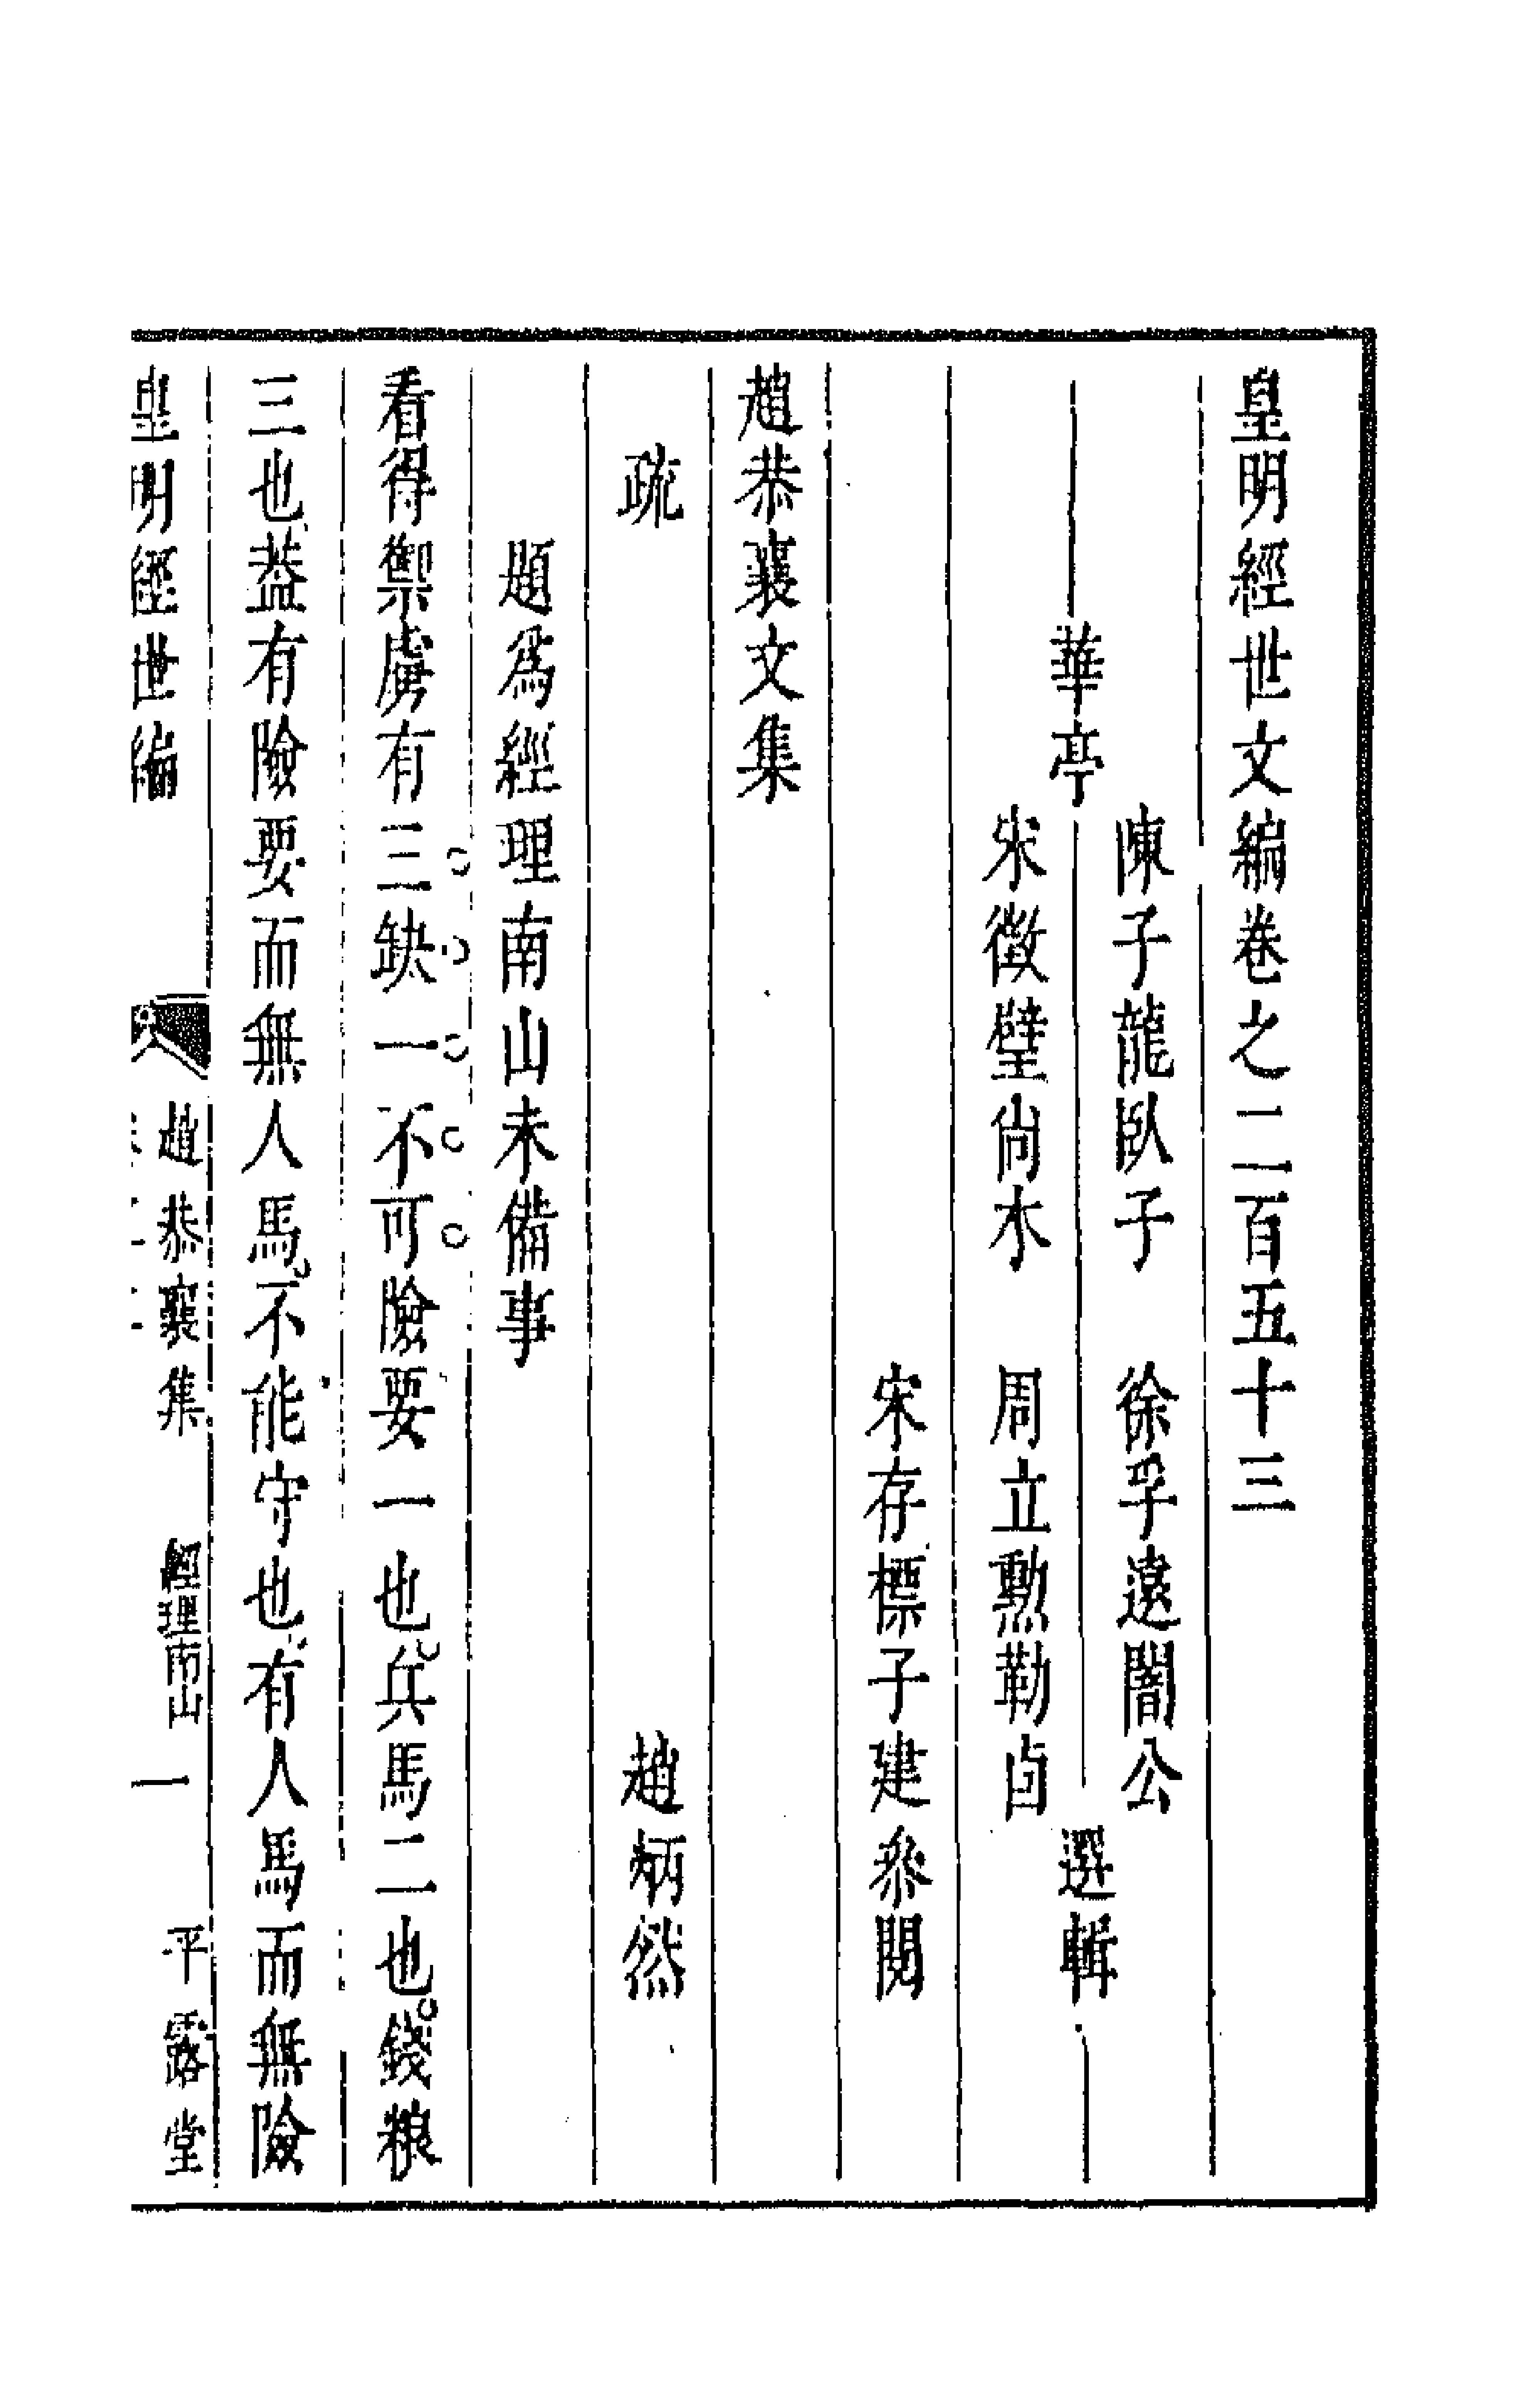 皇明經世文編卷之二百五十三
陳子龍臥子　徐孚遠闇公
華亭　選輯
宋徵璧尚木　周立勲勒卣
宋存標子建叅閱
趙恭襄文集
疏　趙炳然
題爲經理南山未備事
看得禦虜有三缺一不可險要一也兵馬二也錢粮
三也葢有險要而無人馬不能守也有人馬而無險
皇明經世編　趙恭襄集　經理南山　一　平露堂